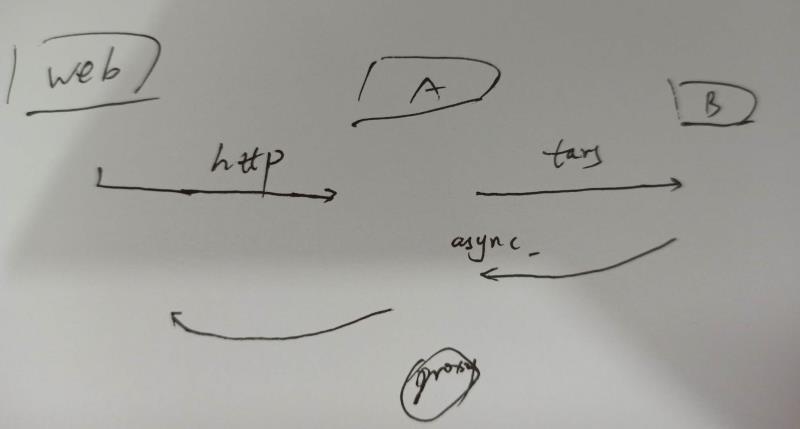 web
A
B
http
tars
async
proxy